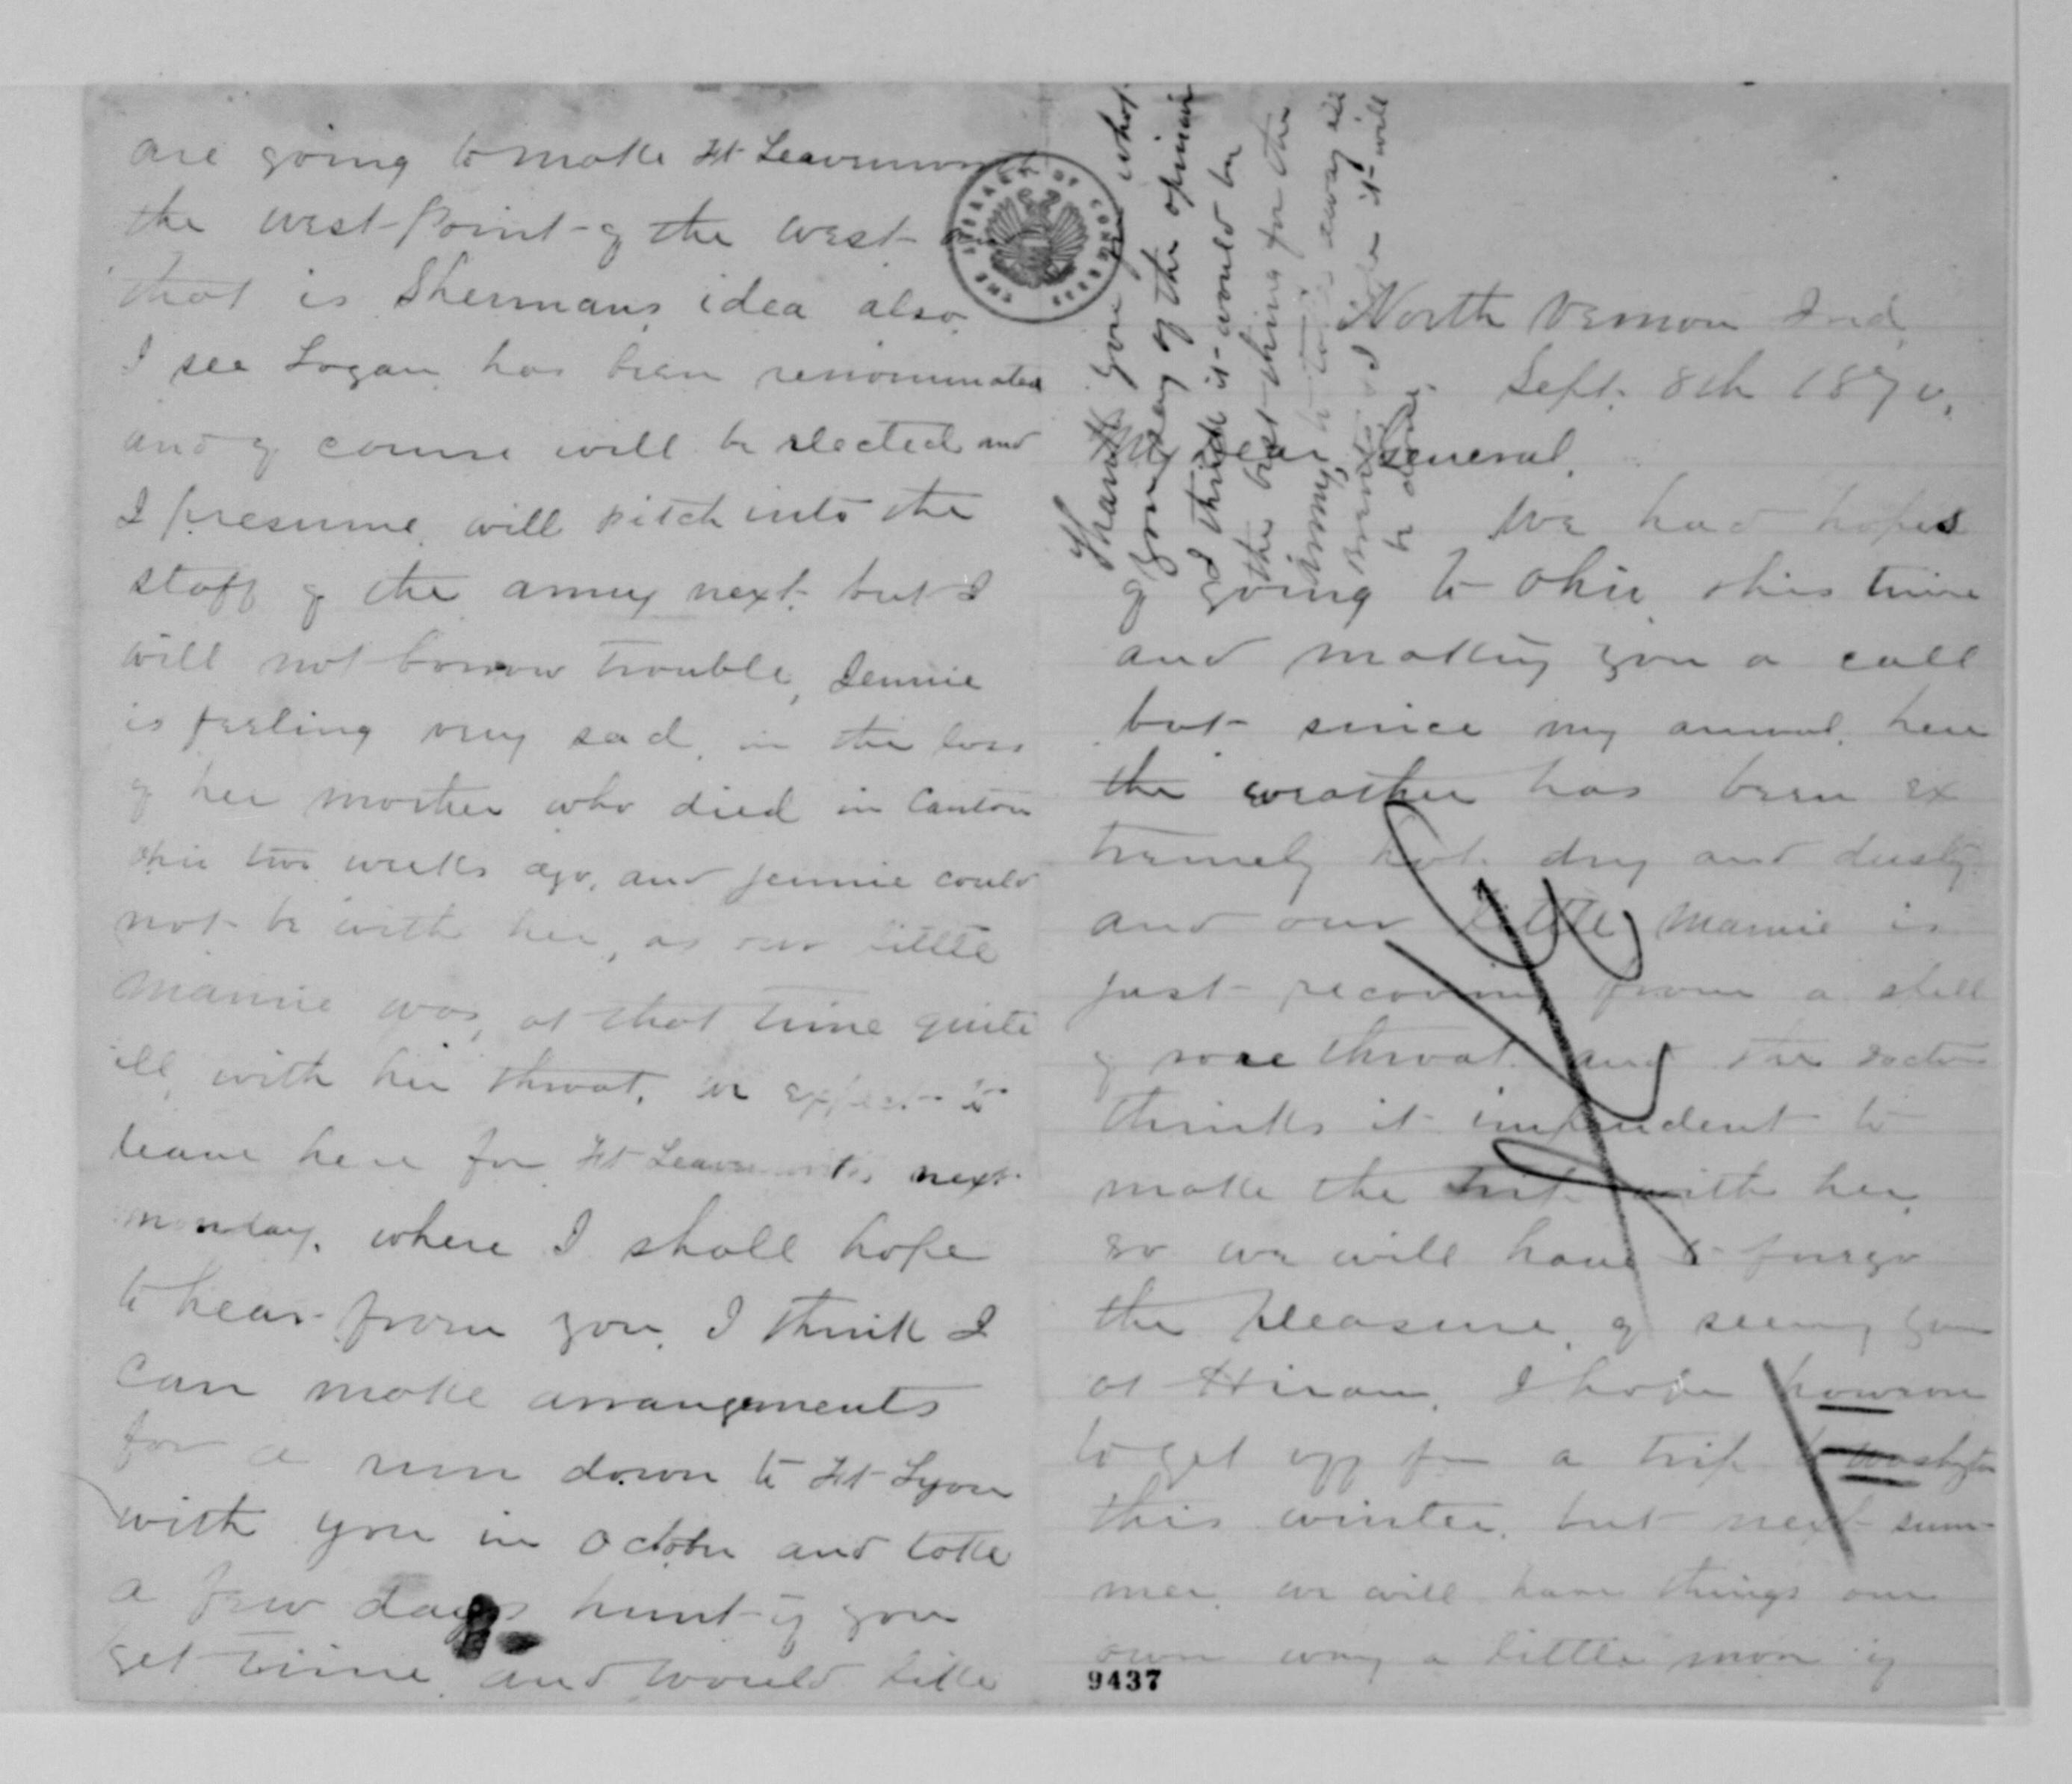 North Vernon Ind,
Sept. 8th 1870.
My Dear General.
We had hopes
of going to Ohio this time
and making you a call
but since my arrival here
the weather has been ex
tremely hot dry and dusty
and our little Mamie is
just recovering from a spell
of sore throat and the doctor
thinks it imprudent to
make the trip with her,
so we will have to forego
the pleasure of seeing you
at Hiram. I hope however
to get off for a trip to Washington
this winter. but next sum-
mer we will have things our
own way a little more if
9437
are going to make Ft Leavenworth
the West Point of the West
that is Shermans idea also
I see Logan has been renominated
and of course will be elected and
I presume will pitch into the
staff of the army next. but I
will not borrow trouble, Jennie
is feeling very sad, in the loss
of her mother who died in Canton
Ohio two weeks ago, and Jennie could
not be with her, as our little
Mamie was, at that time quite
ill, with her throat. we expect to
leave here for Ft Leavenworth next
Monday. where I shall hope
to hear from you. I think I
can make arrangements
for a run down to Ft Lyon
with you in October and take
a few days hunt if you
get time and would like
Thank you for what
you say of the opinion
I think it would be
the best thing for the
Army, to away all
and I hope it will
be done.
THE LIBRARY OF CONGRESS